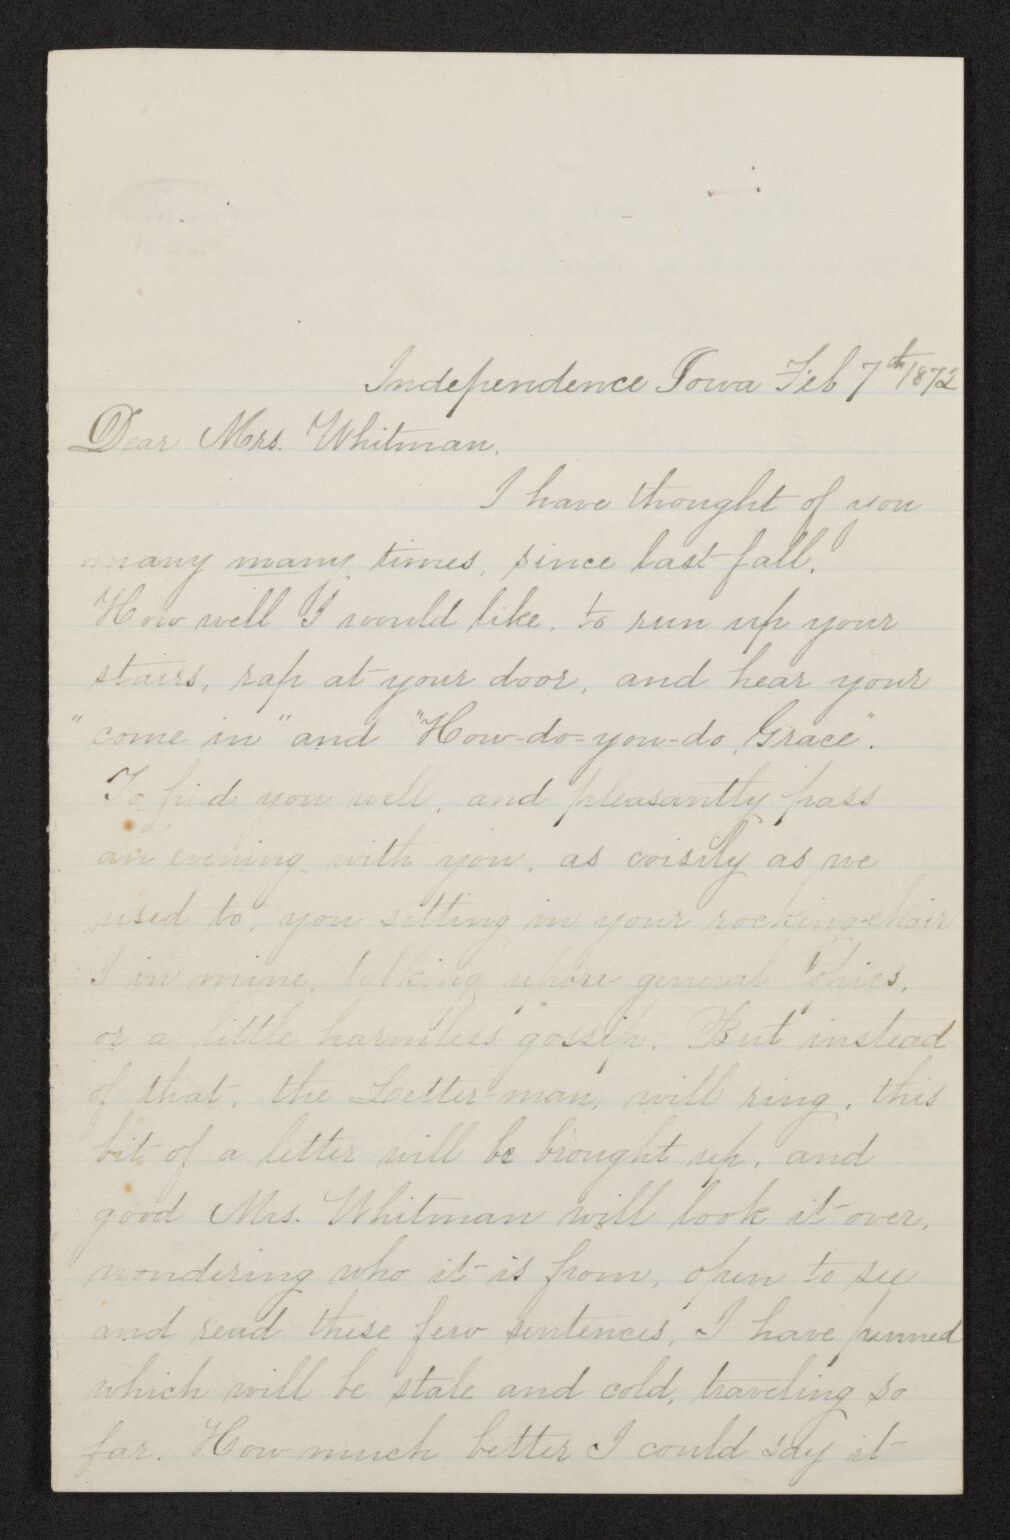 Independence Iowa Feb 7th 1872
Dear Mrs. Whitman.
I have thought of you
many many times, since last fall.
How well I would like, to run up your
stairs, rap at your door, and hear your
"come in" and "How-do-you-do, Grace".
To find you well, and pleasantly pass
an evening with you, as coisily as we
used to, you sitting in your rocking-chair
I in mine, talking upon general
or a little harmless gossip. But instead
of that, the Letter-man, will ring, this
bit of a letter will be brought up, and
good Mrs. Whitman will look it over,
wondering who it is from, open to see
and read these few sentences, I have penned
which will be stale and cold, traveling so
far. How much better I could say it